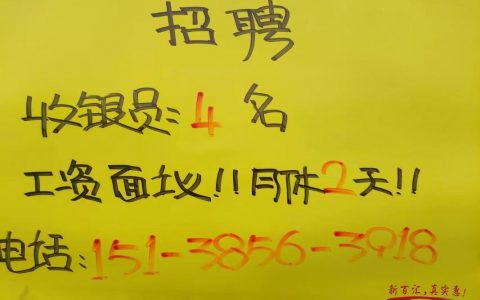 招聘
收银员:4名
工资面议!!月休2天!!
电话:151-3856-3918
新百汇,真实惠!